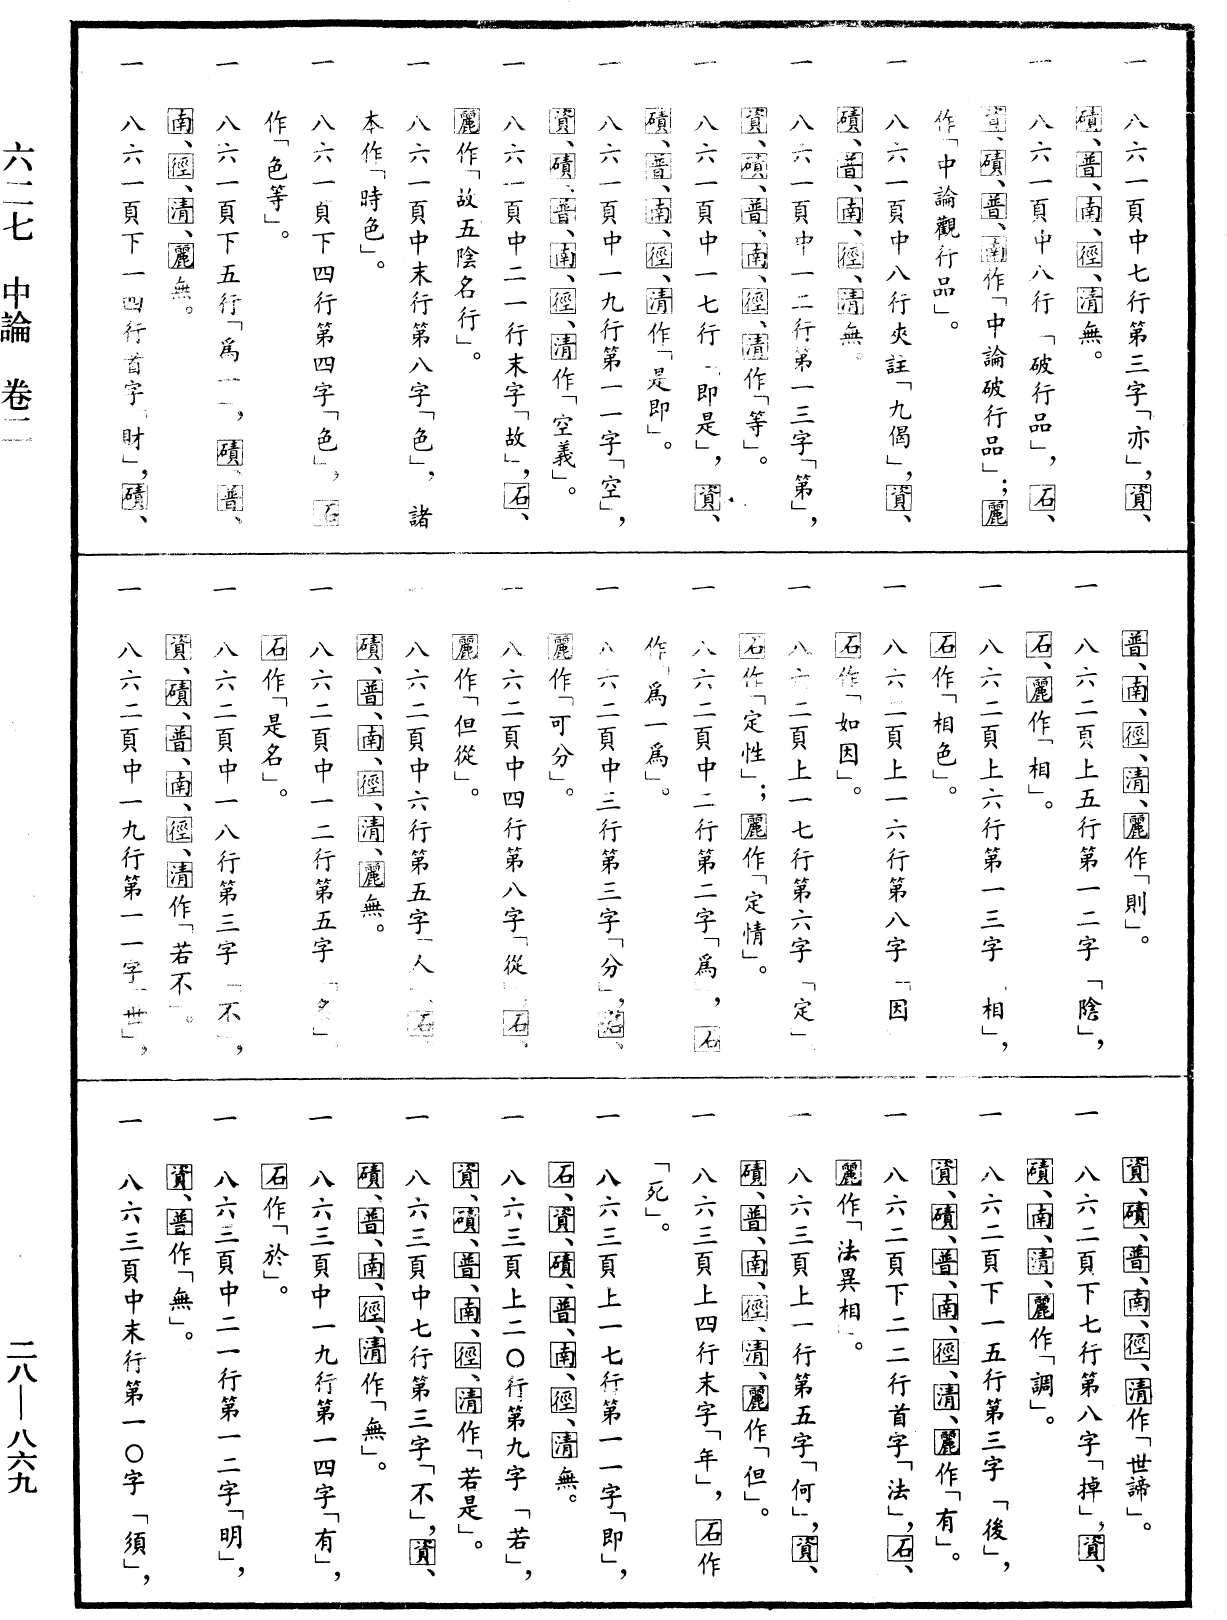 一　八六一頁中七行第三字「亦」，資、
磧、普、南、徑、清無。
一　八六一頁中八行「破行品」，石、
資、磧、普、南作「中論破行品」；麗
作「中論觀行品」。
一　八六一頁中八行夾註「九偈」，資、
磧、普、南、徑、清無。
一　八六一頁中一二行第一三字「第」，
資、磧、普、南、徑、清作「等」。
一　八六一頁中一七行「即是」，資、
磧、普、南、徑、清作「是即」。
一　八六一頁中一九行第一一字「空」，
資、磧、普、南、徑、清作「空義」。
一　八六一頁中二一行末字「故」，石、
麗作「故五陰名行」。
一　八六一頁中末行第八字「色」，諸
本作「時色」。
一　八六一頁下四行第四字「色」，石
作「色等」。
一　八六一頁下五行「爲一」，磧、普、
南、徑、清、麗無。
一　八六一頁下一四行首字「財」，磧、
普、南、徑、清、麗作「則」。
一　八六二頁上五行第一二字「陰」，
石、麗作「相」。
一　八六二頁上六行第一三字「相」，
石作「相色」。
一　八六二頁上一六行第八字「因
石作「如因」。
一　八六二頁上一七行第六字「定」
石作「定性」；麗作「定情」。
一　八六二頁中二行第二字「爲」，石
作「爲一爲」。
一　八六二頁中三行第三字「分」，石、
麗作「可分」。
一　八六二頁中四行第八字「從」，石、
麗作「但從」。
一　八六二頁中六行第五字「人」，石、
磧、普、南、徑、清、麗無。
一　八六二頁中一二行第五字「名」
石作「是名」。
一　八六二頁中一八行第三字「不」，
資、磧、普、南、徑、清作「若不」。
一　八六二頁中一九行第一一字「世」，
資、磧、普、南、徑、清作「世諦」。
一　八六二頁下七行第八字「掉」，資、
磧、南、清、麗作「調」。
一　八六二頁下一五行第三字「後」，
資、磧、普、南、徑、清、麗作「有」。
一　八六二頁下二二行首字「法」，石、
麗作「法異相」。
一　八六三頁上一行第五字「何」，資、
磧、普、南、徑、清、麗作「但」。
一　八六三頁上四行末字「年」，石作
「死」。
一　八六三頁上一七行第一一字「即」，
石、資、磧、普、南、徑、清無。
一　八六三頁上二〇行第九字「若」，
資、磧、普、南、徑、清作「若是」。
一　八六三頁中七行第三字「不」，資、
磧、普、南、徑、清作「無」。
一　八六三頁中一九行第一四字「有」，
石作「於」。
一　八六三頁中二一行第一二字「明」，
資、普作「無」。
一　八六三頁中末行第一〇字「須」，
六二七　中論　卷二
二八—八六九